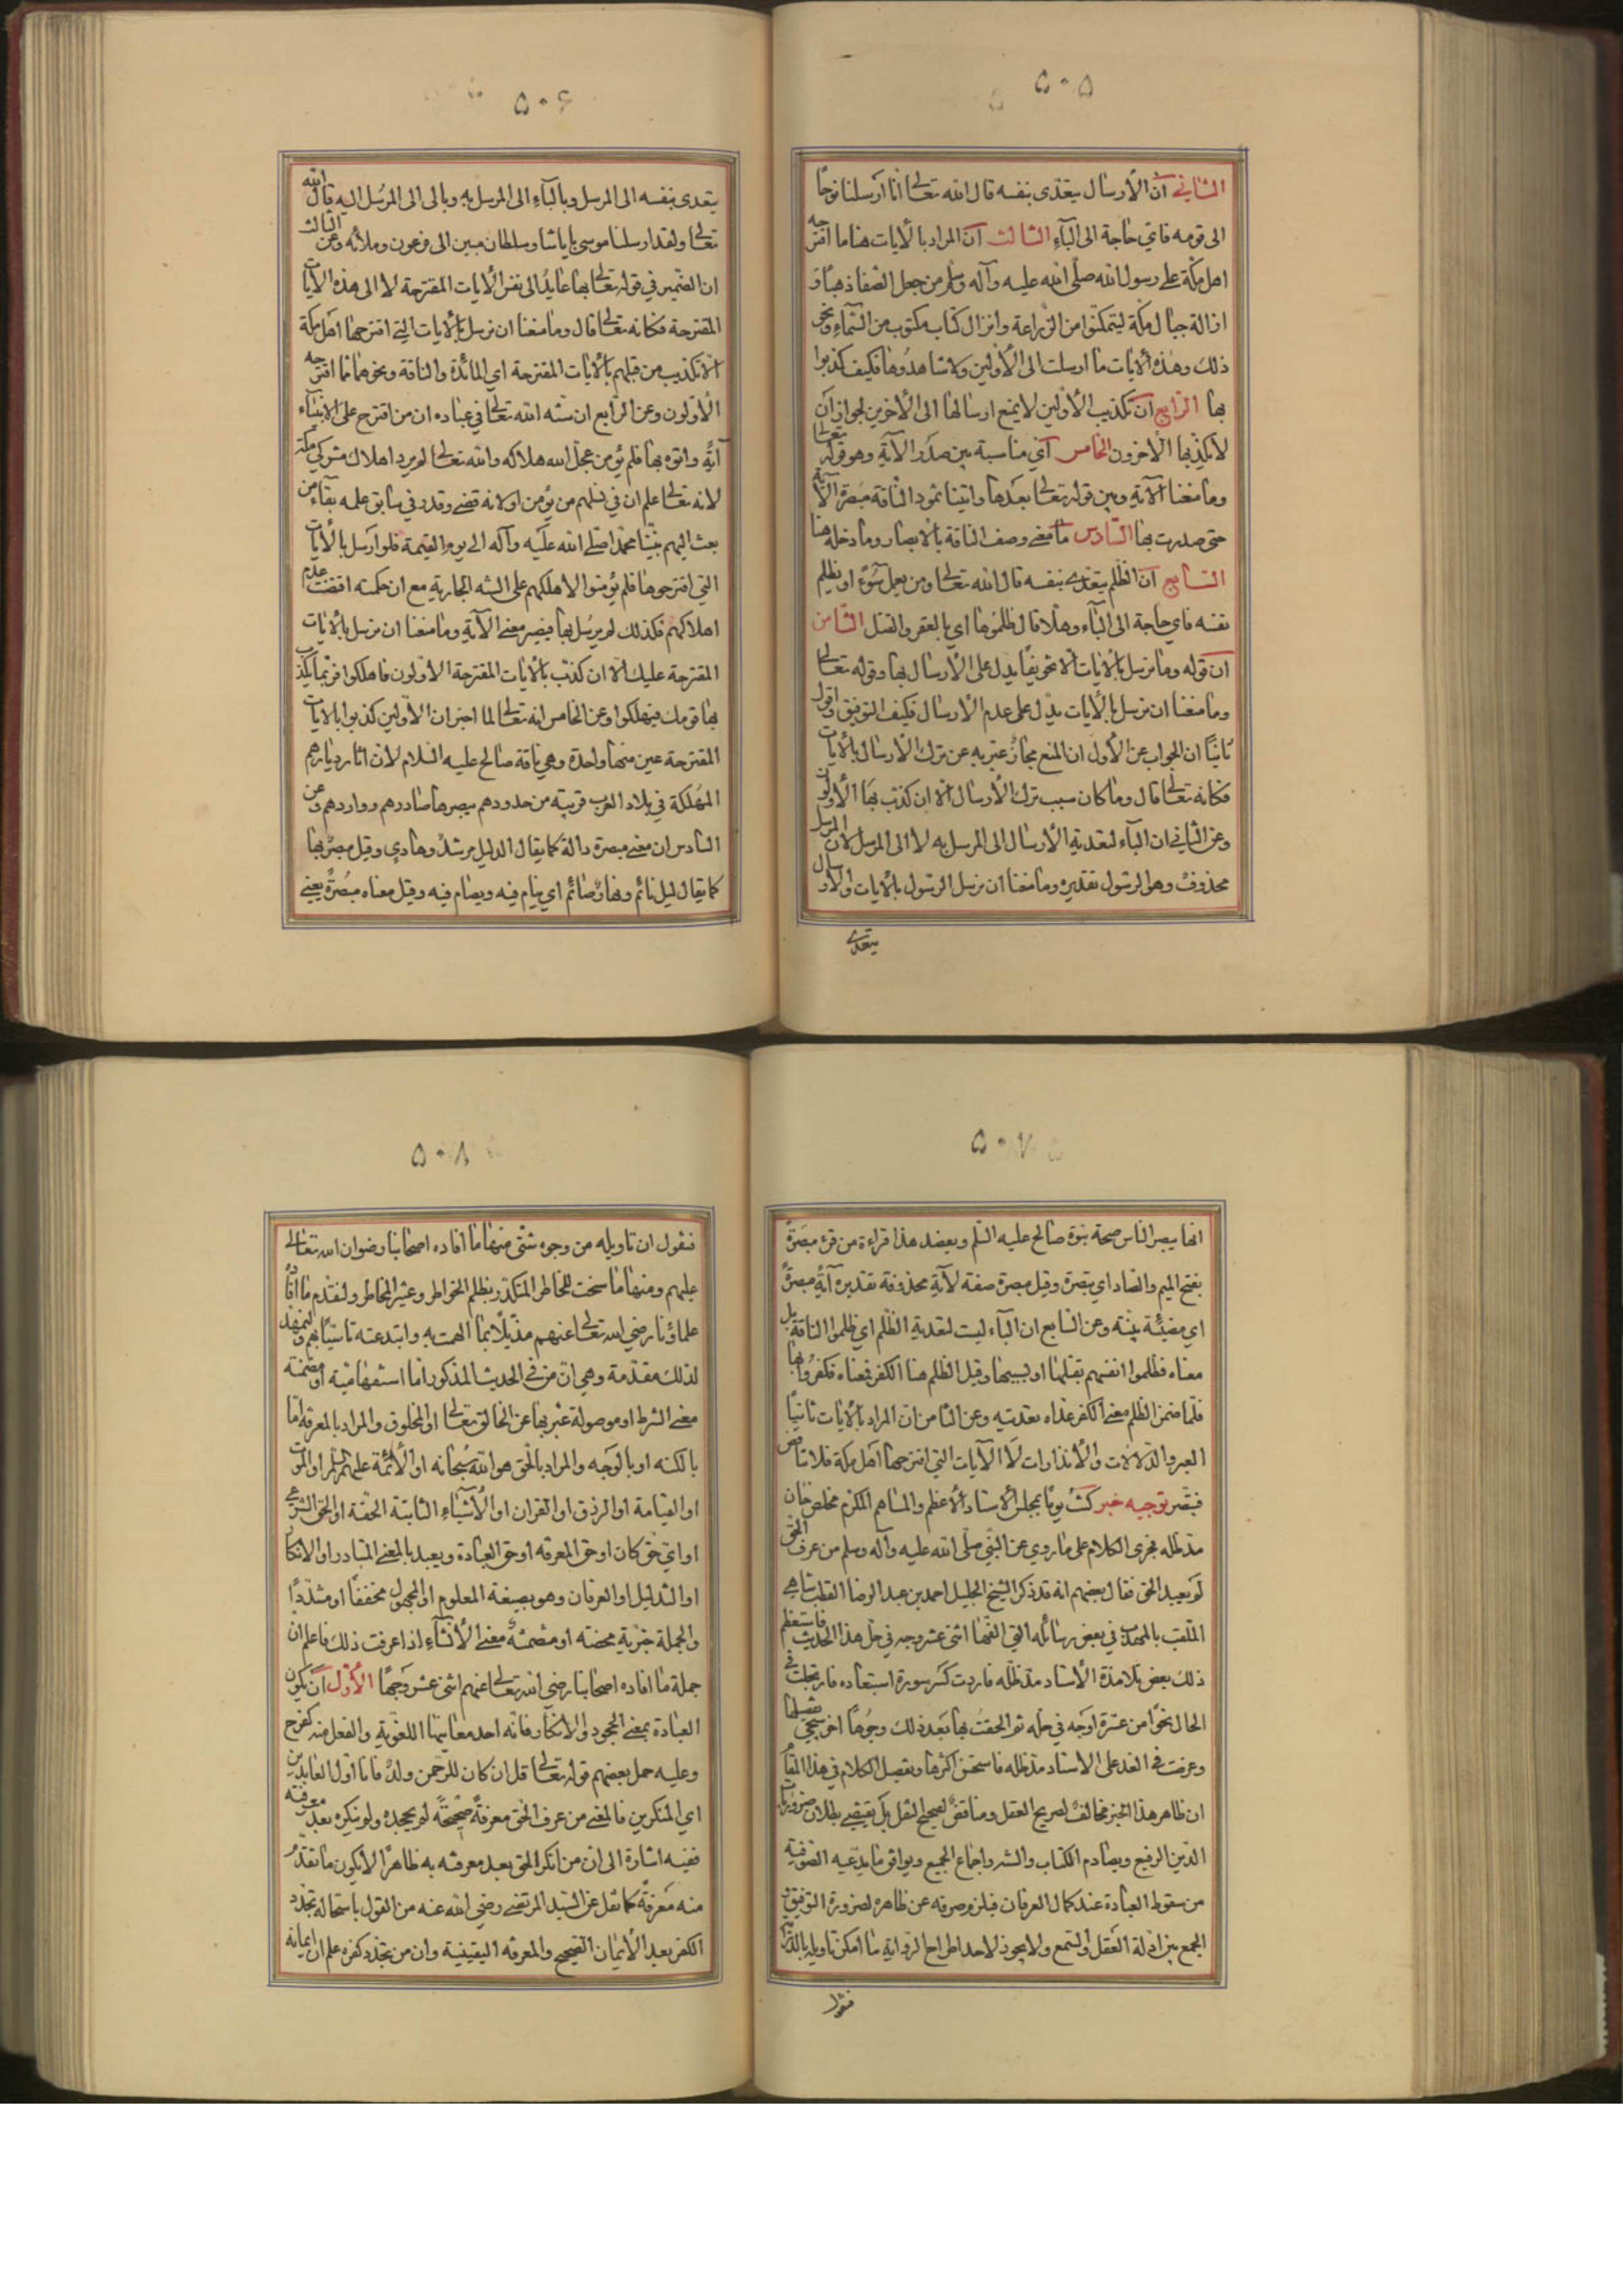 ٥٠٥
الثاني ان الأرسال يتعدى بنفسه قال الله تعالى انا ارسلنا نوحا
الى قومه فاي حاجة الى البآء الثالث ان المراد بالآيات هنا ما اقترحه
اهل مكة على رسول الله صلى الله عليه وآله وسلم من جعل الصفا ذهبا و
ازالة جبال مكة ليتمكنوا من الزراعة وانزال كتاب مكتوب من السماء ونحو
ذلك وهذه الآيات ما ارسلت الى الأولين ولا شاهدوها فكيف كذبوا
بها الرابع ان تكذيب الأولين لا يمنع ارسالها الى الآخرين لجواز ان
لا يكذب بها الآخرون الخامس اي مناسبة بين صدر الآية وهو قوله تعالى
وما منعنا الآية وبين قوله تعالى بعدها واتينا ثمود الناقة مبصرة الآية
حتى صدرت بها السادس ما معنى وصف الناقة بالابصار وما دخله هنا
السابع ان الظلم يتعدى بنفسه قال الله تعالى ومن يعمل سوءً او يظلم
نفسه فاي حاجة الى البآء وهلا قال ظلموها اي بالعقر والقتل الثامن
ان قوله وما نرسل بالآيات الا تخويفا يدل على الأرسال بها وقوله تعالى
وما منعنا ان نرسل بالآيات يدل على عدم الأرسال فكيف التوفيق واقول
ثانيًا ان الجواب عن الأول ان المنع مجاز عبر به عن ترك الارسال بالآيات
فكانه تعالى قال وما كان سبب ترك الأرسال الا ان كذب بها الأولون
وعن الثاني ان البآء لتعدية الأرسال الى المرسل به لا الى المرسل لان المرسل
محذوف وهو الرسول تقديره وما منعنا ان نرسل الرسول بالآيات والارسال
يتعدى
٥٠٦
يتعدى بنفسه الى المرسل وبالبآء الى المرسل به وبالى الى المرسل اليه قال الله
تعالى ولقد ارسلنا موسى باياتنا وسلطان مبين الى فرعون وملائه وعن الثالث
ان الضمير في قوله تعالى بها عايد الى نفس الآيات المقترحة لا الى هذه الآيات
المقترحة فكانه تعالى قال وما منعنا ان نرسل بالآيات التي اقترحها اهل مكة
الا تكذيب من قبلهم بالآيات المقترحة اي المائدة والناقة ونحوهما مما اقترحه
الأولون وعن الرابع ان سنة الله تعالى في عباده ان من اقترح على الانبياء
آية واتوه بها فلم يؤمن عجل الله هلاكه والله تعالى لم يرد اهلاك مشركي مكة
لانه تعالى علم ان في نسلهم من يؤمن او لانه قضى وقدر في سابق علمه بقاء من
بعث اليهم نبينا محمدا صلى الله عليه وآله الى يوم القيمة فلو ارسل بالآيات
التي اقترحوها فلم يؤمنوا لاهلكهم على السنة الجارية مع ان حكمته اقتضت عدم
اهلاكهم فكذلك لم يرسل بها فيصير معنى الآية وما منعنا ان نرسل بالآيات
المقترحة عليك الا ان كذب بالآيات المقترحة الأولون فاهلكوا فربما يكذب
بها قومك فيهلكوا وعن الخامس انه تعالى لما اخبر ان الأولين كذبوا بالآيات
المقترحة عين منها واحدة وهي ناقة صالح عليه السلام لان اثار ديارهم
المهلكة في بلاد العرب قريبة من حدودهم يبصرها صادرهم وواردهم وعن
السادس ان معنى مبصرة دالة كما يقال الدليل مرشد وهادي وقيل مبصر بها
كما يقال ليل نائم ونهار صائم اي ينام فيه ويصام فيه وقيل معناه مبصرة يعني
٥٠٧
انها يبصر الناس صحة نبوة صالح عليه السلم ويعضد هذا قراءة من قرء مبصرة
بفتح الميم والصاد اي تبصرة وقيل مبصرة صفة لآية محذوفة تقديره آية مبصرة
اي مضيئة بينة وعن السابع ان البآء ليست لتعدية الظلم اي ظلموا الناقة بل
معناه فظلموا انفسهم بقتلها او بسببها وقيل الظلم هنا الكفر فمعناه فكفروا بها
فلما ضمن الظلم معنى الكفر عداه تعديته وعن الثامن ان المراد بالآيات ثانيًا
العبر والدلالات والأنذارات لا الآيات التي اقترحها اهل مكة فلا تناقض
فتبصر توجيه خبر كنت يومًا بمجلس الاستاد الأعظم والمساهم المكرم مخلص خان
مد ظله فجرى الكلام على ما روي عن النبي صلى الله عليه وآله وسلم من عرف الحق
لم يعبد الحق فقال بعضهم انه قد ذكر الشيخ الجليل احمد بن عبد الرضا القطبشاهي
الملقب بالمهذب في بعض رسائله التي الفها اثنى عشر وجه في حل هذا الحديث فاستعظم
ذلك بعض تلامذة الأستاد مد ظله فاردت كسر سورة استبعاده فارتجلت في
الحال نحوًا من عشرة اوجه في حله ثم الحقت بها بعد ذلك وجوها اخر سيجي تفصيلها
وعرضت في الغد على الاستاد مد ظله فاستحسن اكثرها وتفصيل الكلام في هذا المقام
ان ظاهر هذا الخبر مخالف لصريح العقل ومناقض لصحيح النقل بل يقتضي بطلان ضروريات
الدين الرفيع ويصادم الكتاب والسنر واجماع الجميع ويوافق ما يدعيه الصوفية
من سقوط العبادة عند كمال العرفان فيلزم صرفه عن ظاهره لضرورة التوفيق و
الجمع بين ادلة العقل والسمع ولا يجوز لاحد اطراح الرواية ما امكن تاويله
فنقول
٥٠٨
فنقول ان تاويله من وجوه شتى منها ما افاده اصحابنا رضوان الله تعالى
عليهم ومنها ما سخت للخاطر المتكدر بظلم الخواطر وعيثر المخاطر ولنقدم ما افاد
علماؤنا رضي الله تعالى عنهم مذيلًا بما الهمت به وابتدعته تاسيًا بهم ولنمهد
لذلك مقدمة وهي ان من في الحديث المذكور اما استفهامية او مضمنة
معنى الشرط او موصولة عبر بها عن الخالق تعالى او المخلوق والمراد بالمعرفة اما
بالكنه او بالوجه والمراد بالحق هو الله سبحانه او الأئمة عليهم السلم او الموت
او القيامة او الرزق او القران او الأشياء الثابتة الحقة او الحق الشرعي
او اي حق كان او حق المعرفه او حق العبادة ويعبد بالمعنى المتبادر او الانكار
او التذليل او العرفان وهو بصيغة المعلوم او المجهول مخففا او مشددا
والجملة خبرية محضة او مضمنة معنى الأنشاء اذا عرفت ذلك فاعلم ان
جملة ما افاده اصحابنا رضي الله تعالى عنهم اثنى عشر وجها الأول ان يكون
العبادة بمعنى الجحود والانكار فانه احد معانيها اللغوية والفعل منه كفرح
وعليه حمل بعضهم قوله تعالى قل ان كان للرحمن ولد فانا اول العابدين
اي المنكرين فالمعنى من عرف الحق معرفة صحيحة لم يجحده ولم ينكره بعد معرفته
ففيه اشارة الى ان من انكر الحق بعد معرفته به ظاهرًا لا يكون ما تقدم
منه معرفة كما نقل عن السيد المرتضى رضي الله عنه من القول باستحالة تجدد
الكفر بعد الأيمان الصحيح والمعرفه اليقينية وان من تجدد كفره علم ان ايمانه